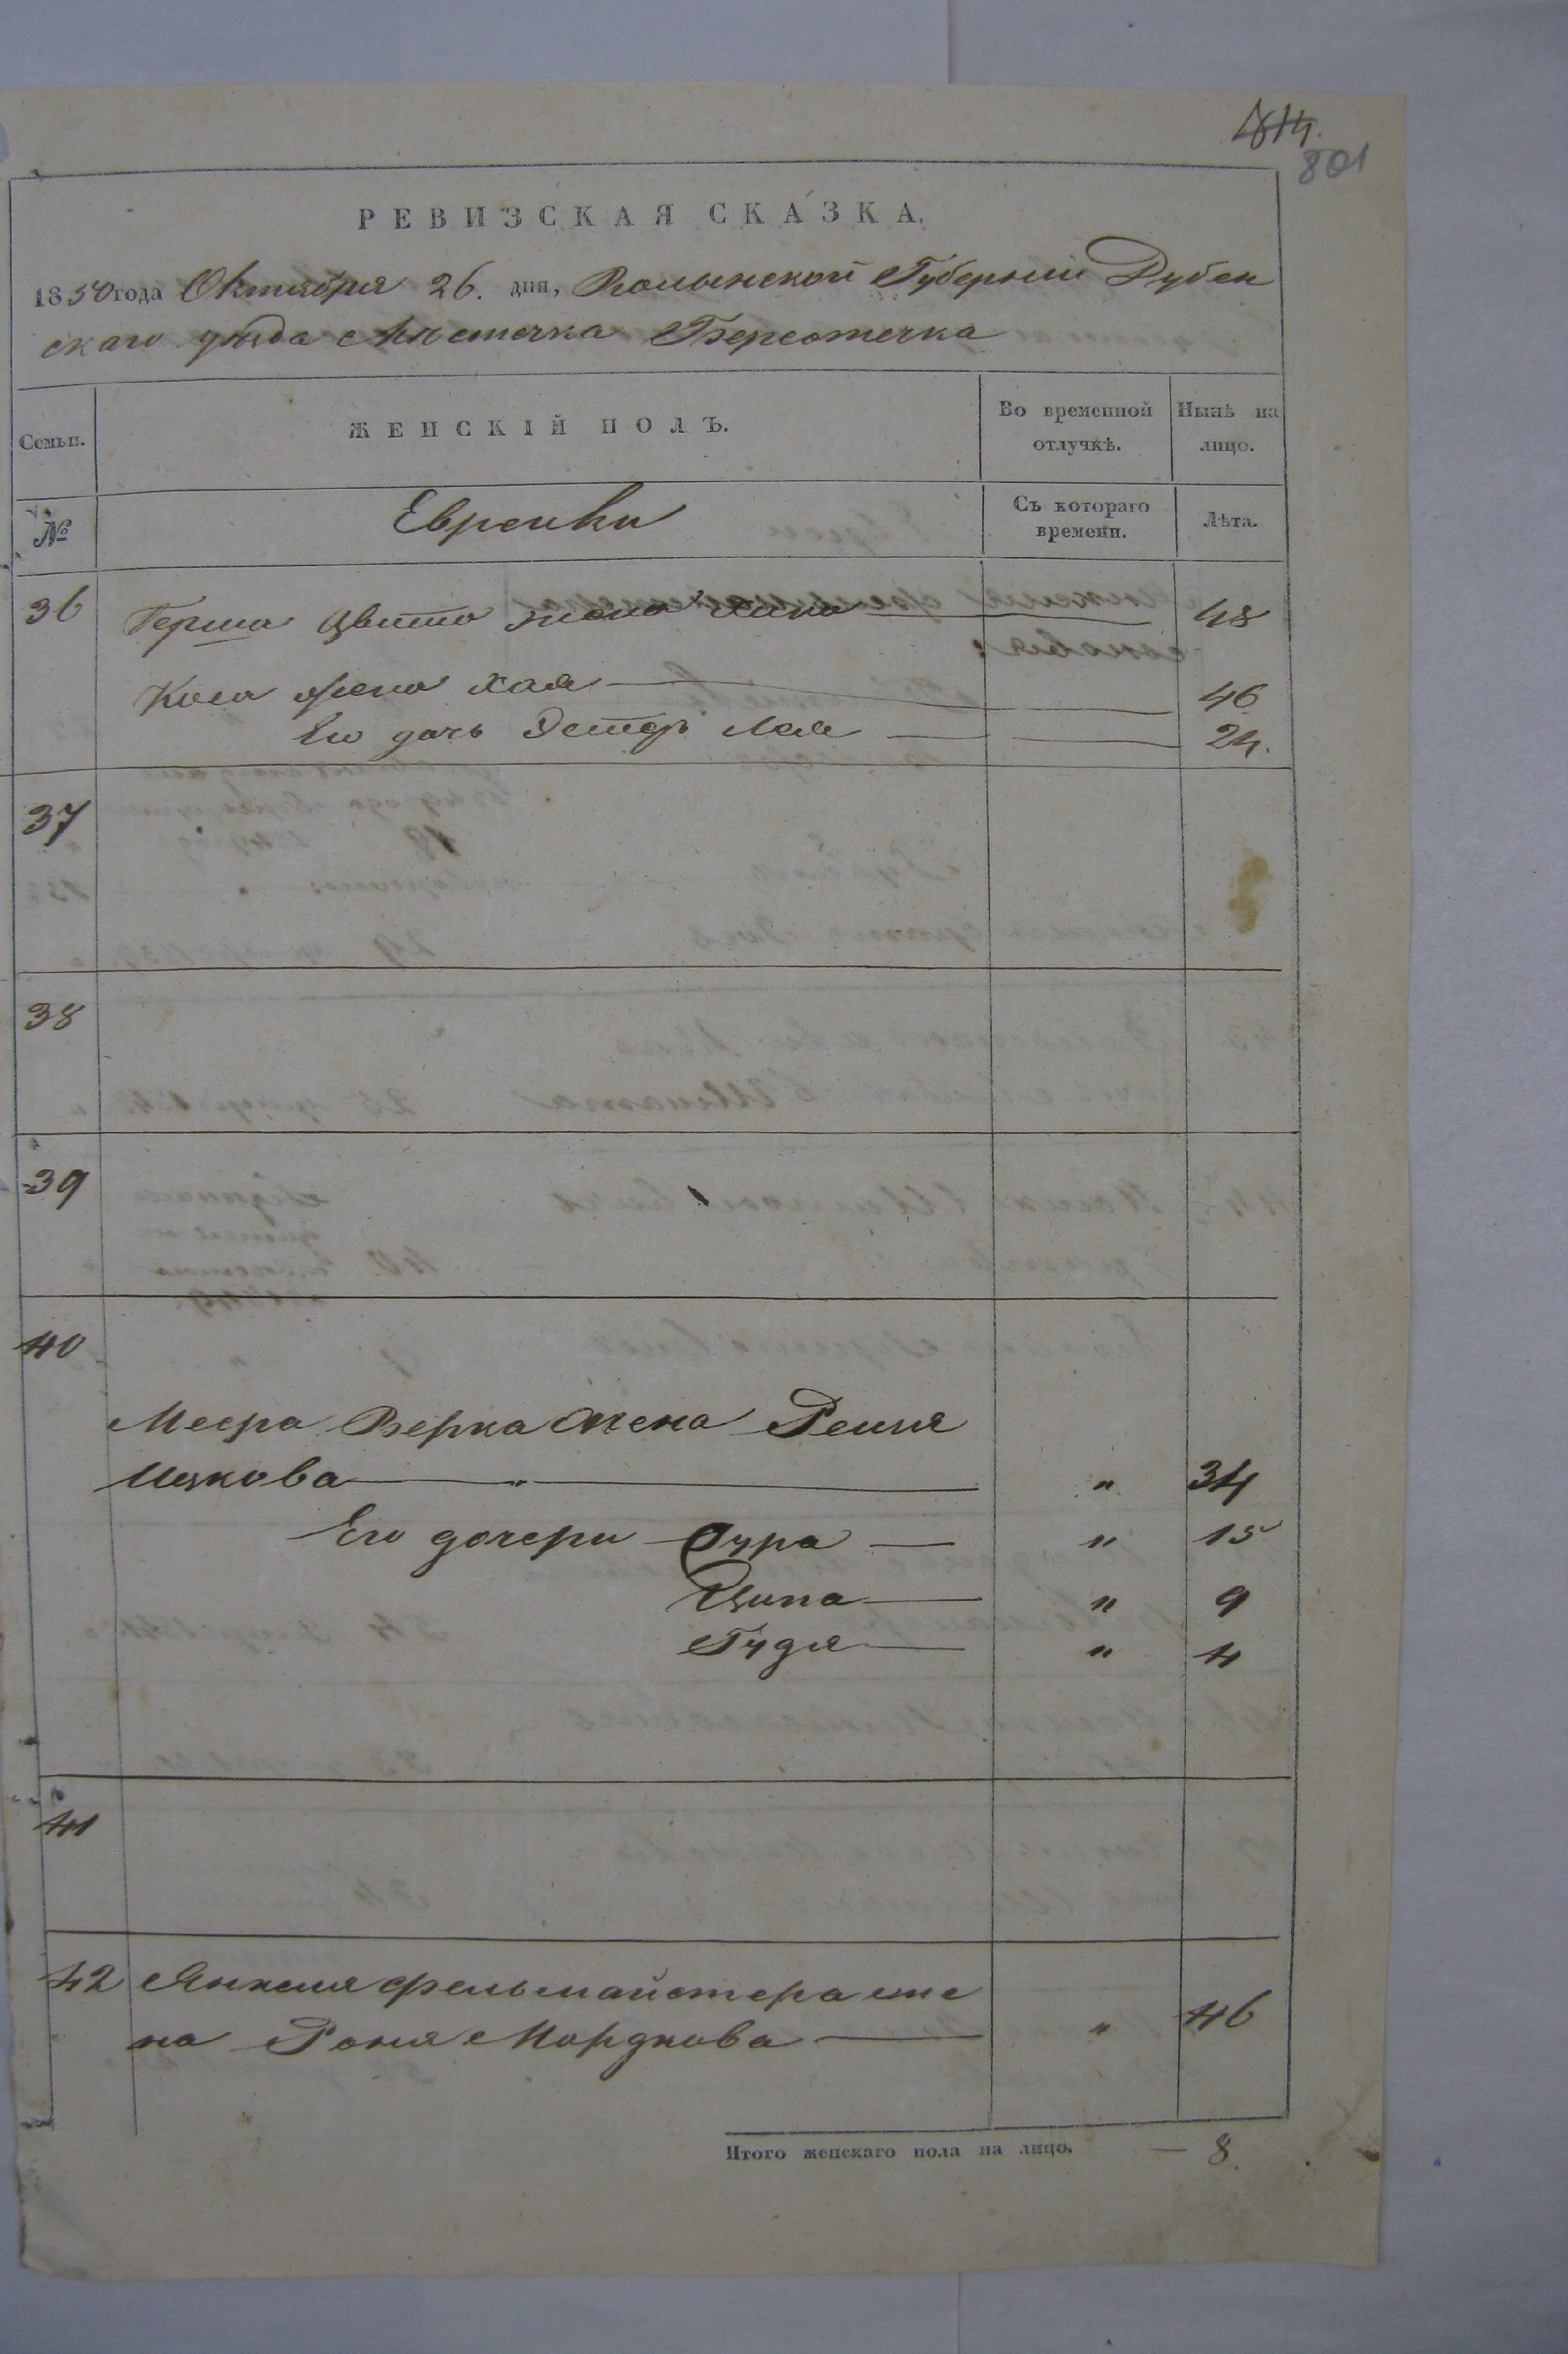 801
РЕВИЗСКАЯ СКАЗКА.
1850 года Октября 26. дня, Волынской Губернии Дубен
скаго уѣзда Мѣстечка Берестечка
Семьи.
ЖЕНСКІЙ ПОЛЪ.
Во временной отлучкѣ.
Нынѣ на лицо.
№
Еврейки
Съ котораго времени.
Лѣта.
36 Герша Цвита жена Хана 48
жена Хая 46
Его дочь Эстеръ Лея 24.
37
38
39
40
Меера Берка жена Рейзя
Ицкова " " 34
Его дочери Сура " 15
Ципа " 9
Гудя " 4
41
42 Янкеля Фельмайстера же
на Роня Мордкова " 46
Итого женскаго пола на лицо. — 8.